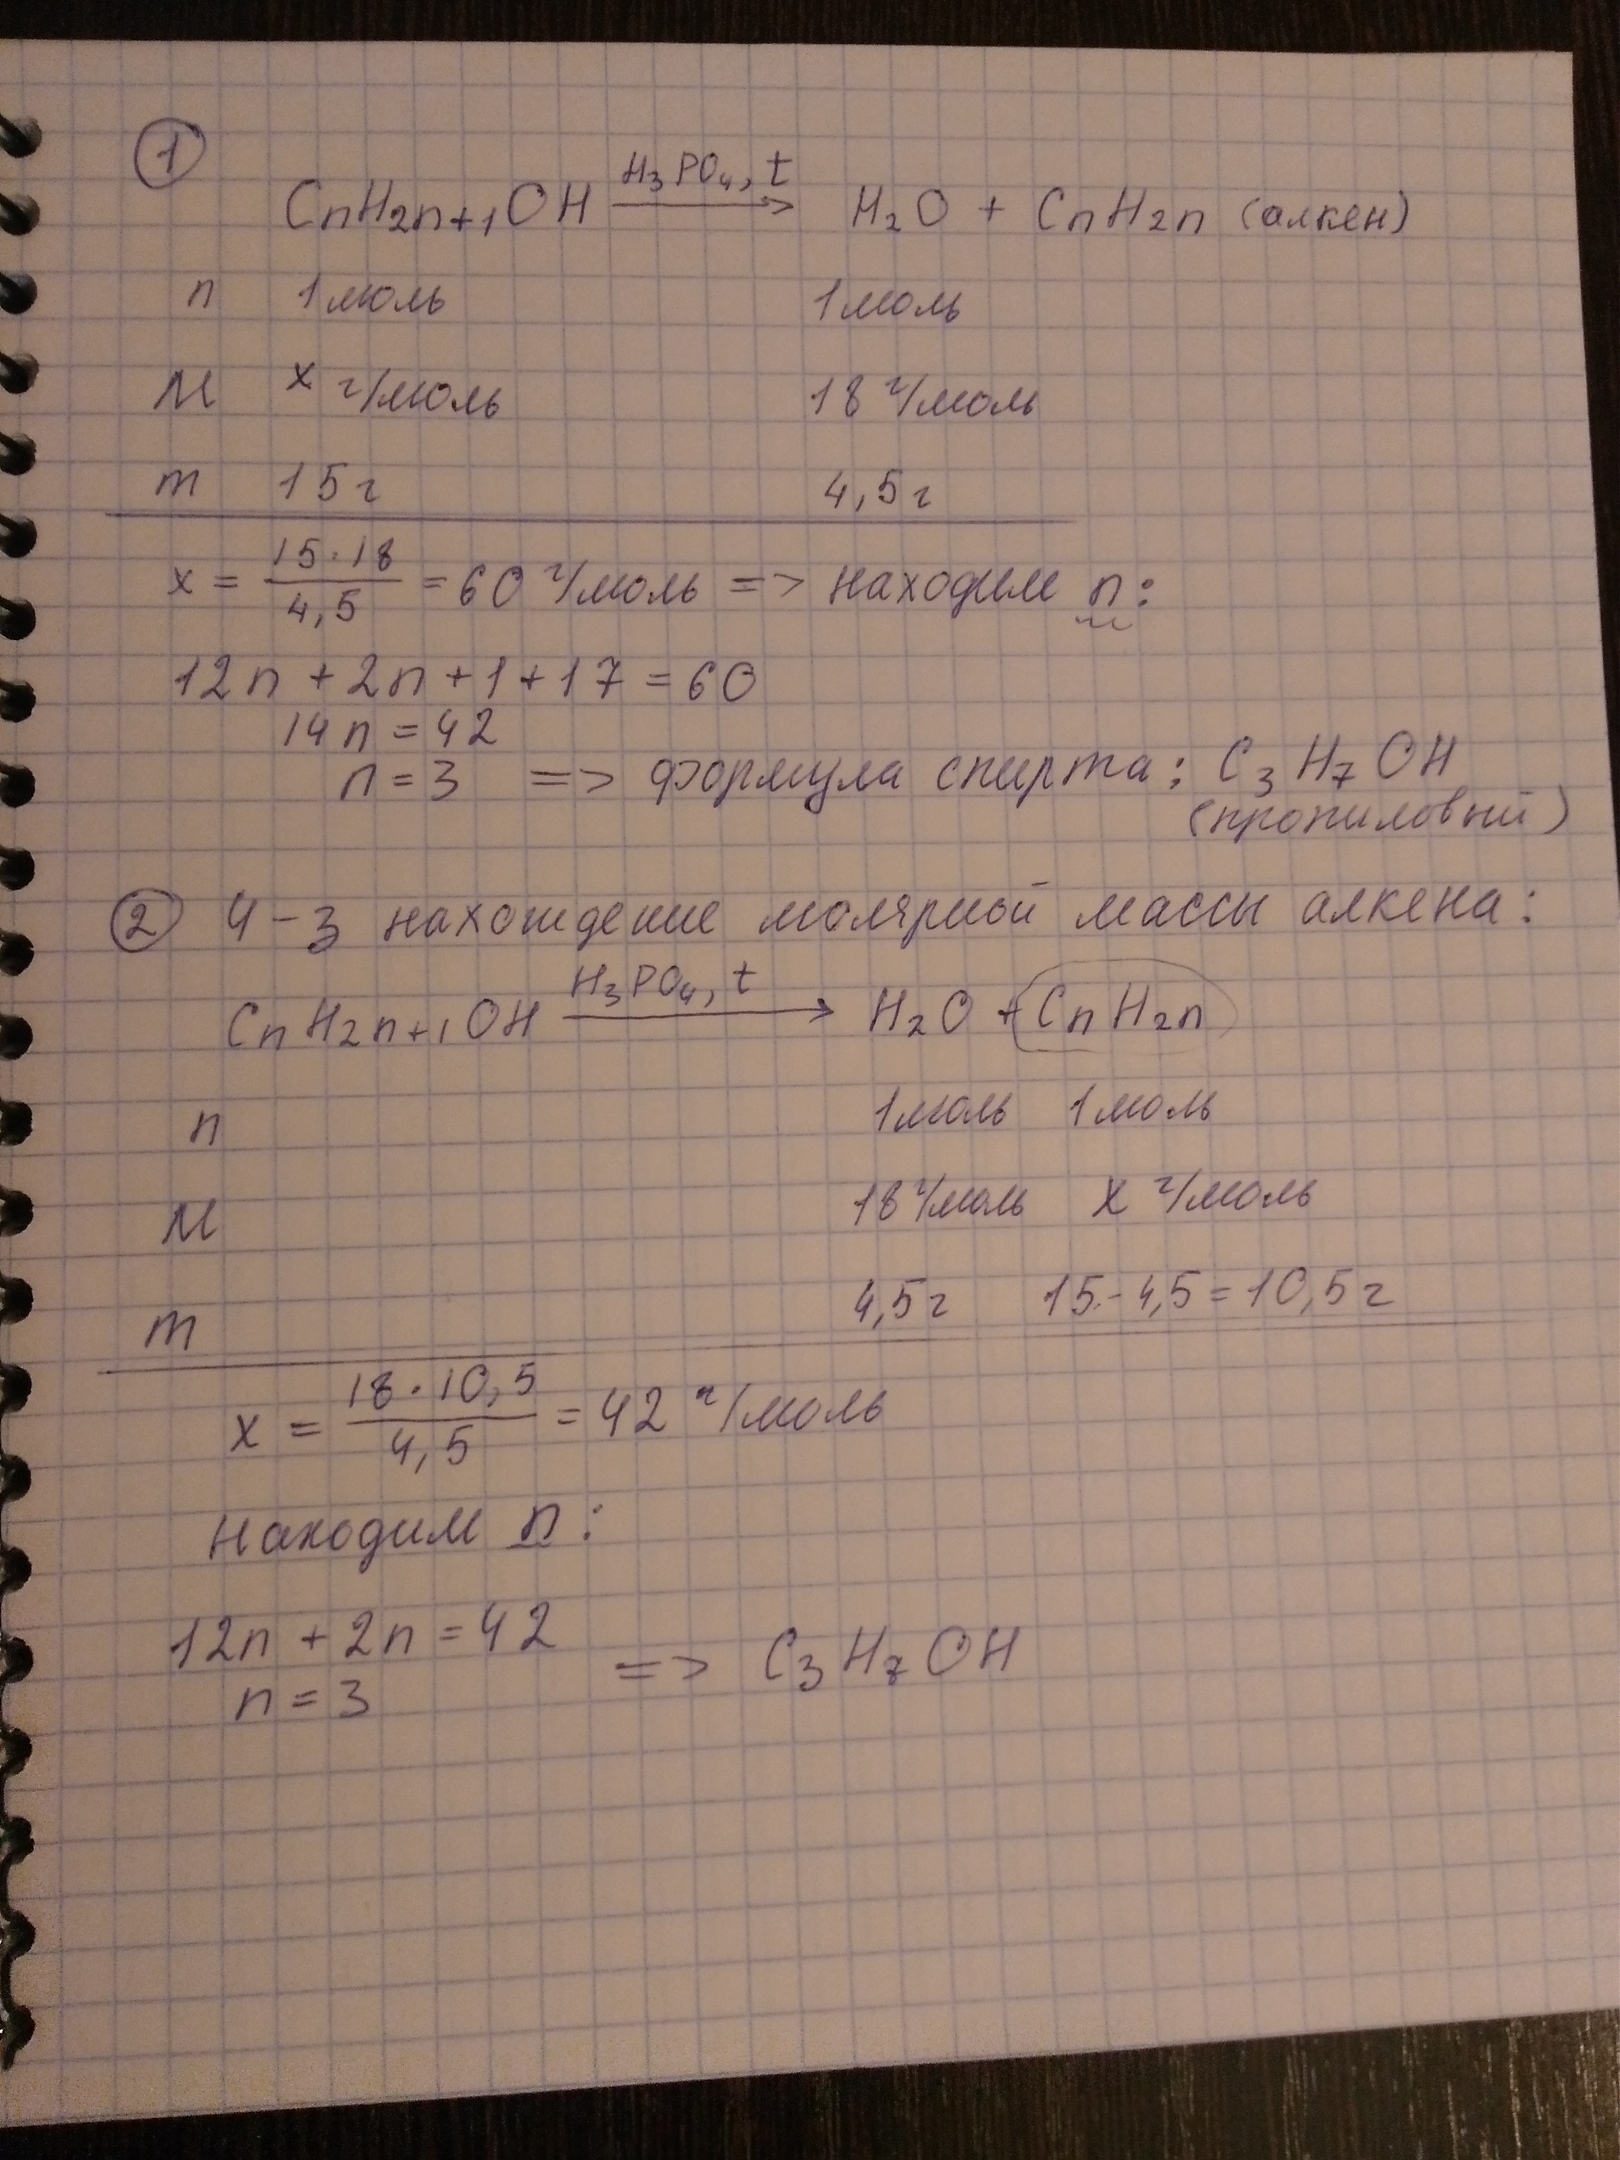 1
H₃PO₄, t
CnH₂n+₁OH → H₂O + CnH₂n (алкен)
n 1моль 1моль
M x г/моль 18 г/моль
m 15г 4,5г
x = 15·18/4,5 = 60 г/моль => находим n:
12n + 2n + 1 + 17 = 60
14n = 42
n = 3 => формула спирта: C₃H₇OH
(пропиловый)
2 ч-з нахождение молярной массы алкена:
H₃PO₄, t
CnH₂n+₁OH → H₂O + CnH₂n
n 1моль 1моль
M 18 г/моль x г/моль
m 4,5г 15-4,5=10,5г
x = 18·10,5/4,5 = 42 г/моль
Находим n:
12n + 2n = 42
n = 3 => C₃H₇OH